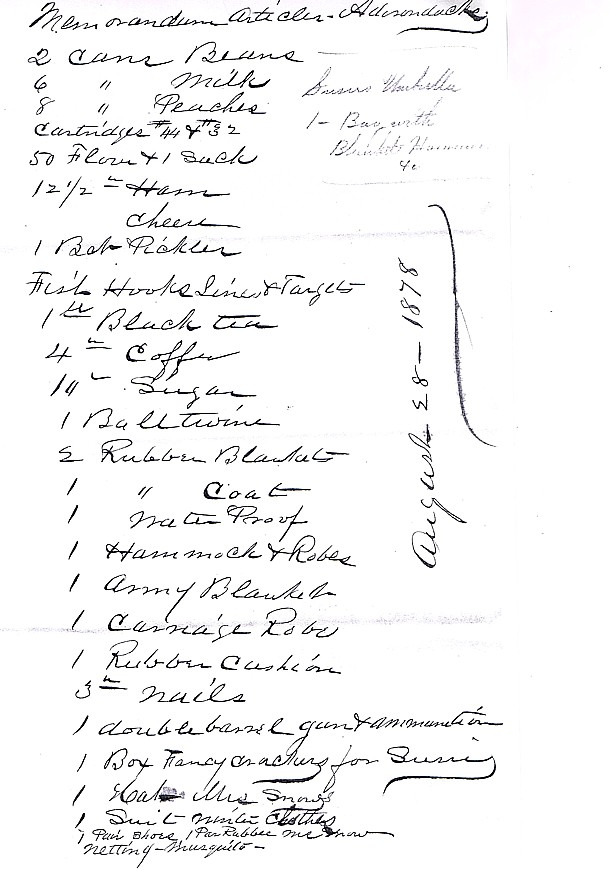 Memorandum Articles - Adirondacks
2 Cans Beans
6 " Milk
8 " Peaches
Cartridges #44 & #32
50 Flour & 1 Sack
12 1/2 lb Ham
Cheese
1 Bot Pickles
Fish Hooks Lines & Targets
1 lb Black tea
4 lb Coffee
14 lb Sugar
1 Ball twine
2 Rubber Blankets
1 " Coat
1 Water Proof
1 Hammock & Robes
1 Army Blanket
1 Carriage Robe
1 Rubber Cushion
3 lb nails
1 double barrel gun & ammunition
1 Box Fancy crackers for
1 Hat Mrs Snows
1 Suit winter Clothes
1 Pair Shoes 1 Pair Rubber Mr Snow
Netting - Musquito -
Umbrella
1 - Bag with
Blankets Hammock
&c
August 28 - 1878